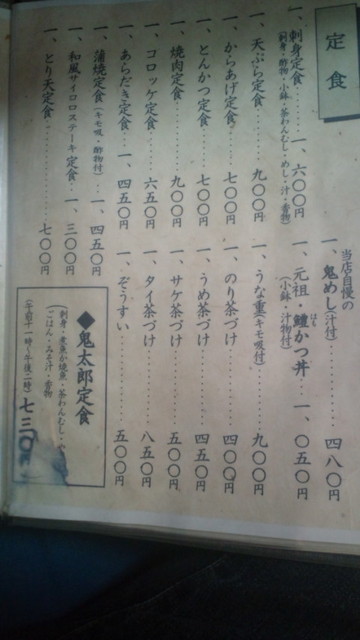 定食
一、刺身定食……一、六〇〇円
(刺身・酢物・小鉢・茶わんむし・めし・汁・香物)
一、天ぷら定食……九〇〇円
一、からあげ定食……七〇〇円
一、とんかつ定食……七〇〇円
一、焼肉定食……九〇〇円
一、コロッケ定食……六五〇円
一、あらだき定食…一、四五〇円
一、蒲焼定食(キモ吸・酢物付)…一、四五〇円
一、和風サイコロステーキ定食・一、三〇〇円
一、とり天定食……七〇〇円
当店自慢の
一、鬼めし(汁付)……四八〇円
一、元祖・鱧かつ丼…一、〇五〇円
はも
(小鉢・汁物付)
一、うな重(キモ吸付)……九〇〇円
一、のり茶づけ……四〇〇円
一、うめ茶づけ……四五〇円
一、サケ茶づけ……五〇〇円
一、タイ茶づけ……八五〇円
一、ぞうすい……五〇〇円
◆鬼太郎定食
(刺身・煮魚か焼魚・茶わんむし・や
ごはん・みそ汁・香物
(午前十一時〜午後二時)七三〇円